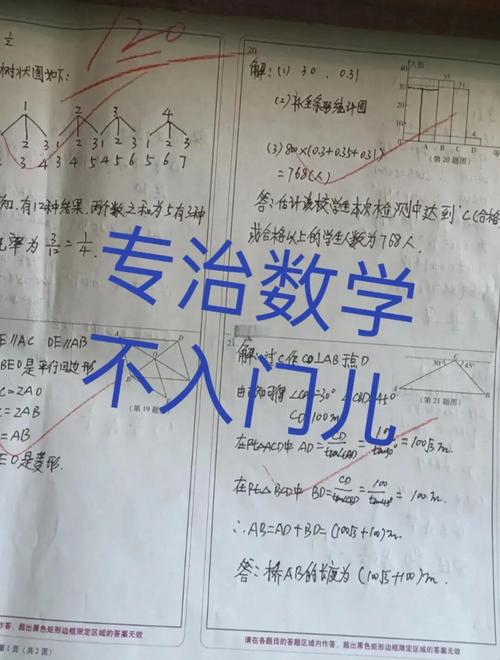 120
1/2
树状图如下:
1 2 3 4
2 3 4 1 3 4 1 2 4 1 2 3
3 4 5 4 5 6 5 6 7
知,有12种结果,两个数之和为5有3种
率为 3/12 = 1/4.
E∥AC DE∥AB
BEO是平行四边形
C=2AO
=2AB
=AB
EO是菱形.
(第19题图)
作答,超出黑色矩形边框限定区域的答案无效
第1页(共2页)
20.
解:(1) 30, 0.31
(2)补全条形统计图
(3) 800×(0.3+0.35+0.31)
=768(人)
答:估计该校学生本次检测中达到“C(合格
或合格以上的学生人数为768人.
人数
40
30
20
10
0
A B C D
(第20题图)
专治数学
不入门儿
21.
解:过C作CD⊥AB于点D
CD=100m
在Rt△ACD中 AD=CD/tan∠CAD = =100√3m
在Rt△BCD中 BD=CD/tan∠CBD = = 100m.
∴AB=AD+BD=(100√3+100)m.
答:桥AB的长度为(100√3+100)m.
30° C 45°
A B
(第21题图)
请在各题目的答题区域内作答,超出黑色矩形边框限定区域的答案无效